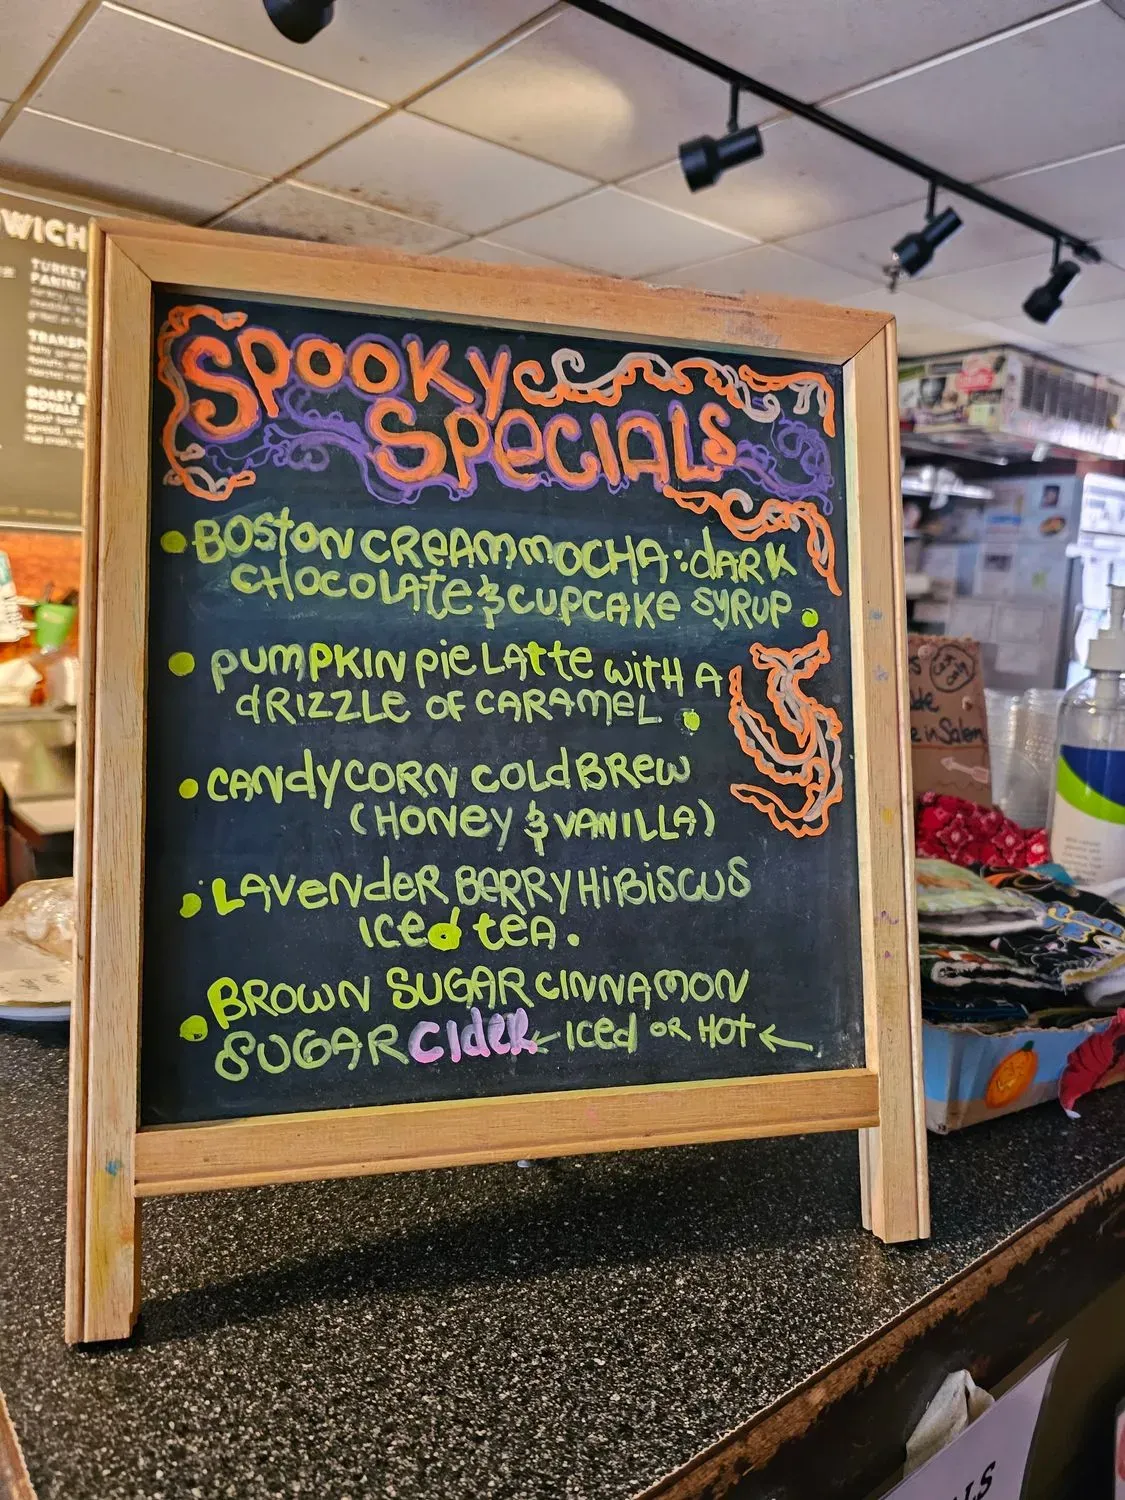 WICH
TURKEY
PANINI
ROAST B
ROYALE
SPOOKY
SPECIALS
• BOSTON CREAM MOCHA: DARK
CHOCOLATE & CUPCAKE SYRUP.
• PUMPKIN PIE LATTE WITH A
DRIZZLE OF CARAMEL.
• CANDYCORN COLD BREW
(HONEY & VANILLA)
• LAVENDER BERRY HIBISCUS
ICED TEA.
• BROWN SUGAR CINNAMON
SUGAR CIDER ← ICED OR HOT ←
in Salem
LS